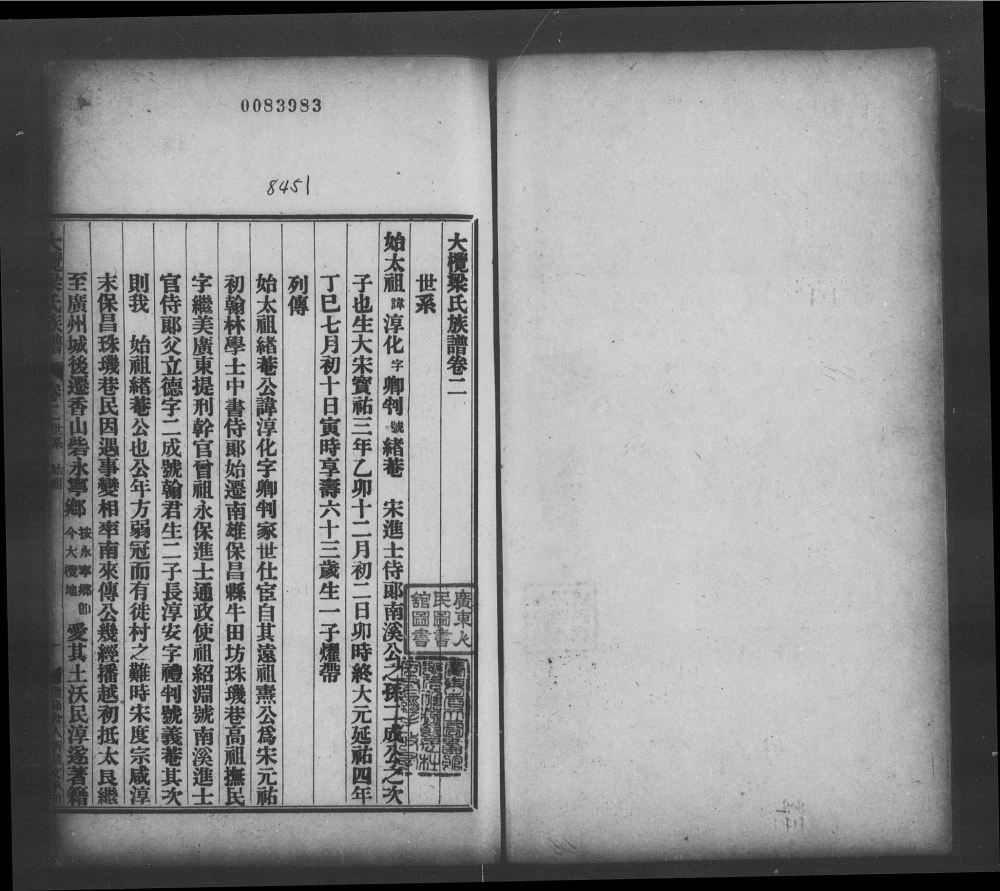 0083983
8451
大欖梁氏族譜卷二
世系
始太祖諱淳化字卿判號緒菴　宋進士侍郞南溪公之孫二成公之次
子也生大宋寶祐三年乙卯十二月初二日卯時終大元延祐四年
丁巳七月初十日寅時享壽六十三歲生一子燿帶
列傳
始太祖緒菴公諱淳化字卿判家世仕宦自其遠祖燾公爲宋元祐
初翰林學士中書侍郞始遷南雄保昌縣牛田坊珠璣巷高祖撫民
字繼美廣東提刑幹官曾祖永保進士通政使祖紹淵號南溪進士
官侍郞父立德字二成號翰君生二子長淳安字禮判號義菴其次
則我　始祖緒菴公也公年方弱冠而有徙村之難時宋度宗咸淳
末保昌珠璣巷民因遇事變相率南來傳公幾經播越初抵太艮繼
至廣州城後遷香山砦永寧鄉按永寧鄉卽今大欖地愛其土沃民淳遂著籍
廣東人民圖書館圖書